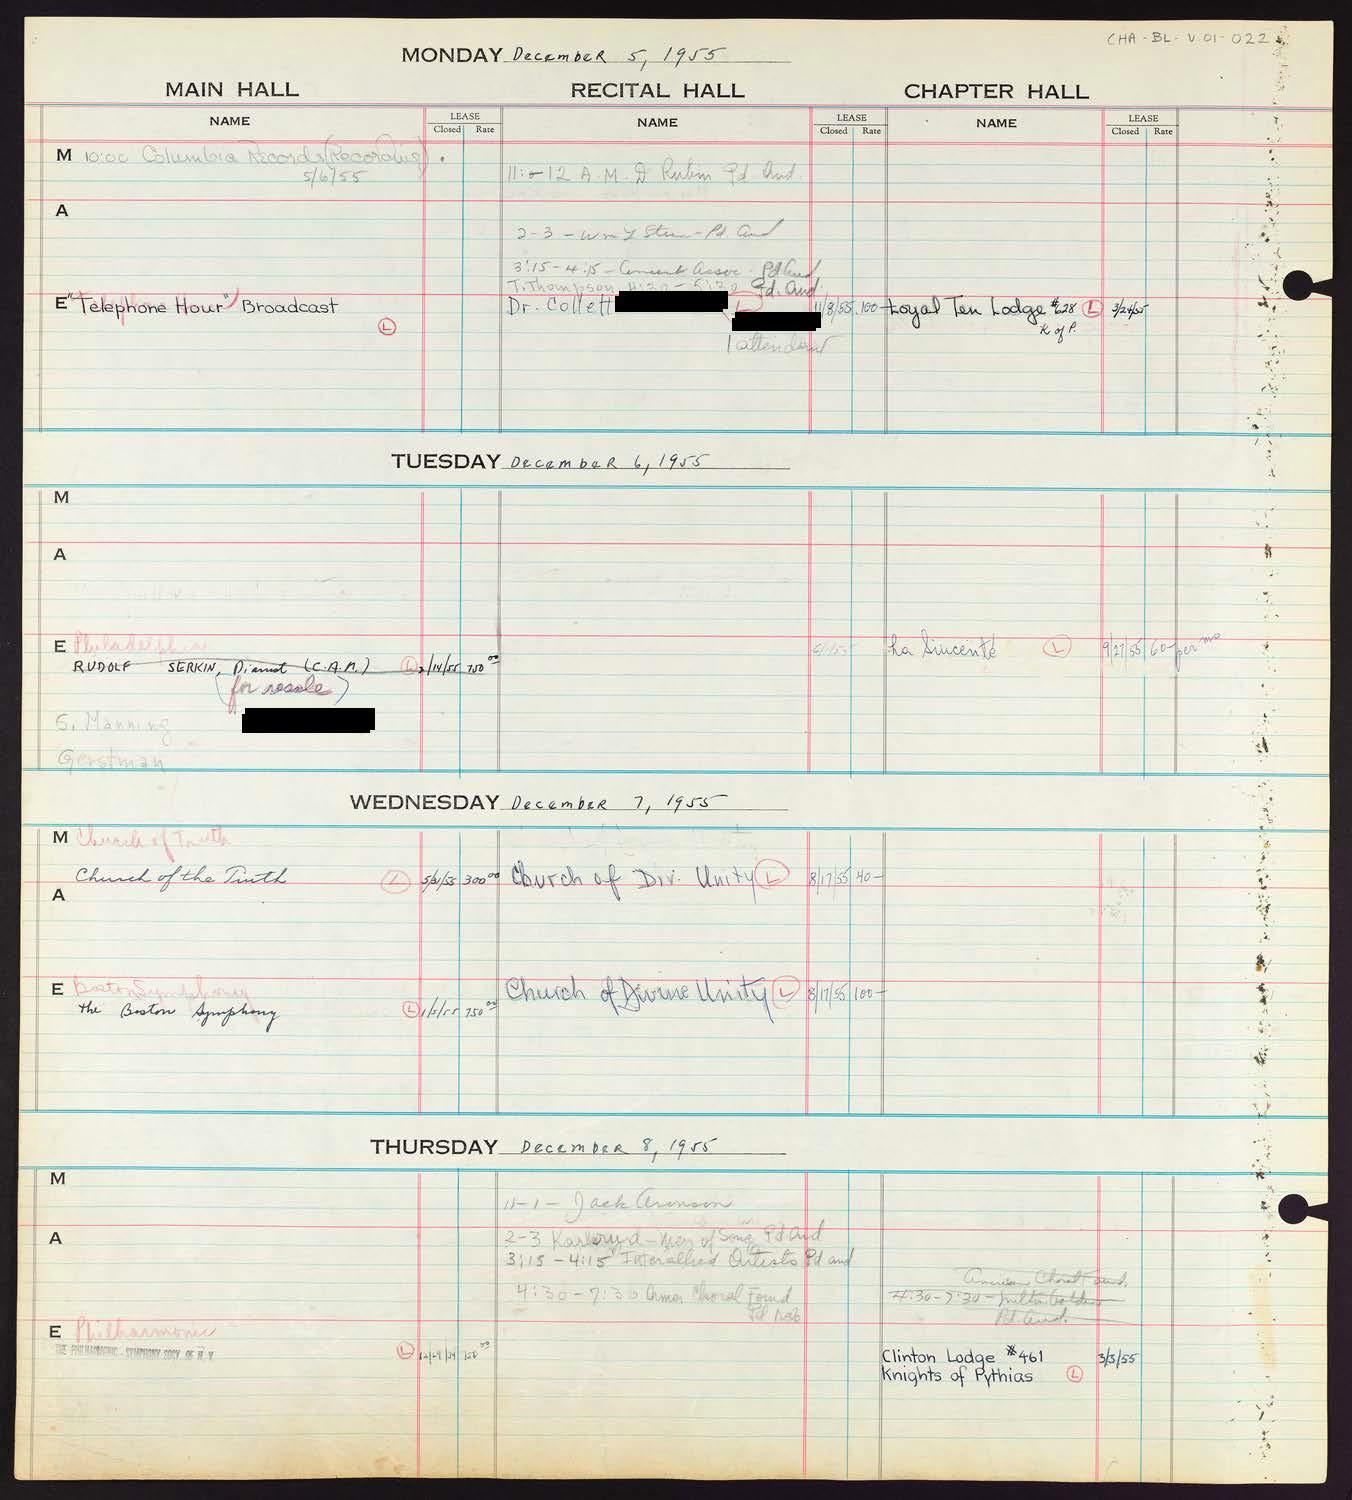 CHA-BL-V.01-022
MONDAY December 5, 1955
MAIN HALL RECITAL HALL CHAPTER HALL
NAME LEASE Closed Rate NAME LEASE Closed Rate NAME LEASE Closed Rate
M 10:00 Columbia Records (Recording)
5/6/55
11:-12 A.M. D Rubin Pd Aud.
A
2-3 - Wm Y Stern - Pd. Aud
3:15-4:15 - Concert Assoc. Pd Aud
T. Thompson 4:30-5:30 Pd. Aud.
E "Telephone Hour" Broadcast L
Dr. Collett L 11/8/55 100-
1 attendant
Loyal Ten Lodge #628 L 3/24/55
K of P.
TUESDAY December 6, 1955
M
A
E Philadelphia
RUDOLF SERKIN, Pianist (C.A.M.) L 2/14/55 750.00
(for resale)
La Sincenté L 9/27/55 60- per mo
S. Manning
Gerstman
WEDNESDAY December 7, 1955
M Church of Truth
Church of the Truth L 5/31/55 300.00
Church of Div. Unity L 8/17/55 40-
A
E Boston Symphony
The Boston Symphony L 1/5/55 750.00
Church of Divine Unity L 8/17/55 100-
THURSDAY December 8, 1955
M
11-1 - Jack Aronson
A
2-3 - Men of Song Pd Aud
3:15-4:15 Interallied Artists Pd aud
4:30-7:30 Amer Choral Found
Pd Reb
American Choral Found.
4:30-7:30 - Milton
Pd. Aud.
E Philharmonic
THE PHILHARMONIC-SYMPHONY SOCY. OF N.Y. L
Clinton Lodge #461 3/3/55
Knights of Pythias L